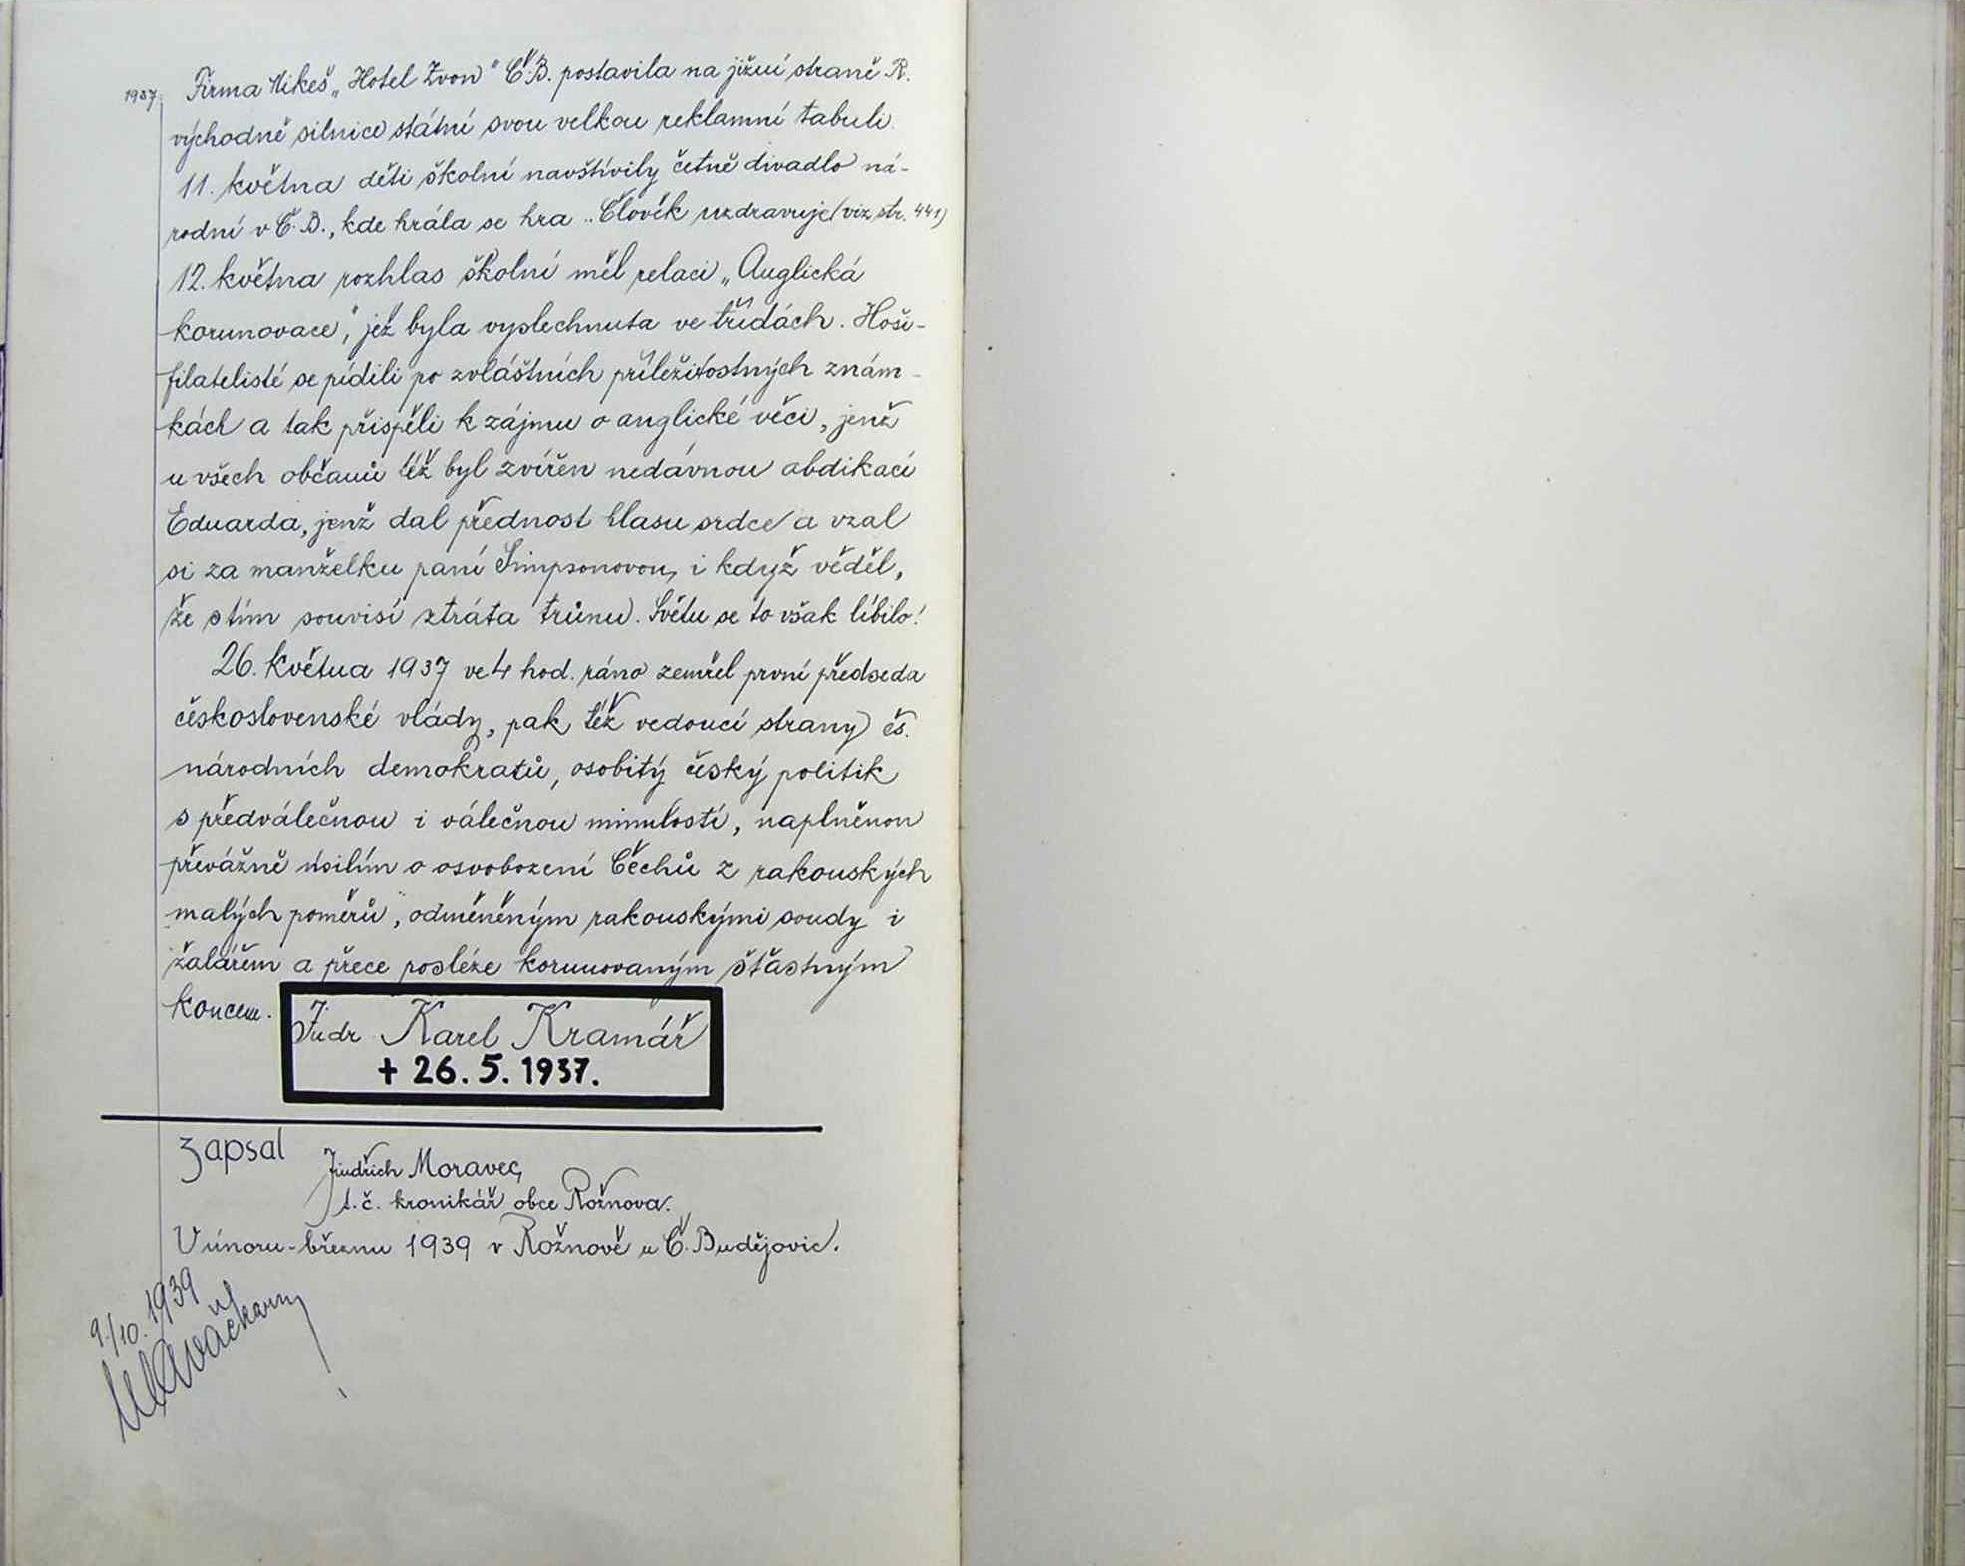 1937 Firma Mikeš „Hotel Zvon" Č.B. postavila na jižní straně R.
východně silnice státní svou velkou reklamní tabuli.
11. května děti školní navštívily četně divadlo ná-
rodní v Č.B., kde hrála se hra „Člověk uzdravuje (viz str. 441)
12. května rozhlas školní měl relaci „Anglická
korunovace", jež byla vyslechnuta ve třídách. Hoši-
filatelisté se pídili po zvláštních příležitostných znám-
kách a tak přispěli k zájmu o anglické věci, jenž
u všech občanů též byl zvířen nedávnou abdikací
Eduarda, jenž dal přednost hlasu srdce a vzal
si za manželku paní Simpsonovou, i když věděl,
že s tím souvisí ztráta trůnu. Světu se to však líbilo!
26. května 1937 ve 4 hod. ráno zemřel první předseda
československé vlády, pak též vedoucí strany čs.
národních demokratů, osobitý český politik
s předválečnou i válečnou minulostí, naplněnou
převážně úsilím o osvobození Čechů z rakouských
malých poměrů", odměněným rakouskými soudy i
žalářem a přece posléze korunovaným šťastným
koncem.
Judr Karel Kramář
† 26. 5. 1937.
zapsal
Jindřich Moravec,
t.č. kronikář obce Rožnova.
V únoru-březnu 1939 v Rožnově u Č. Budějovic.
9./10. 1939